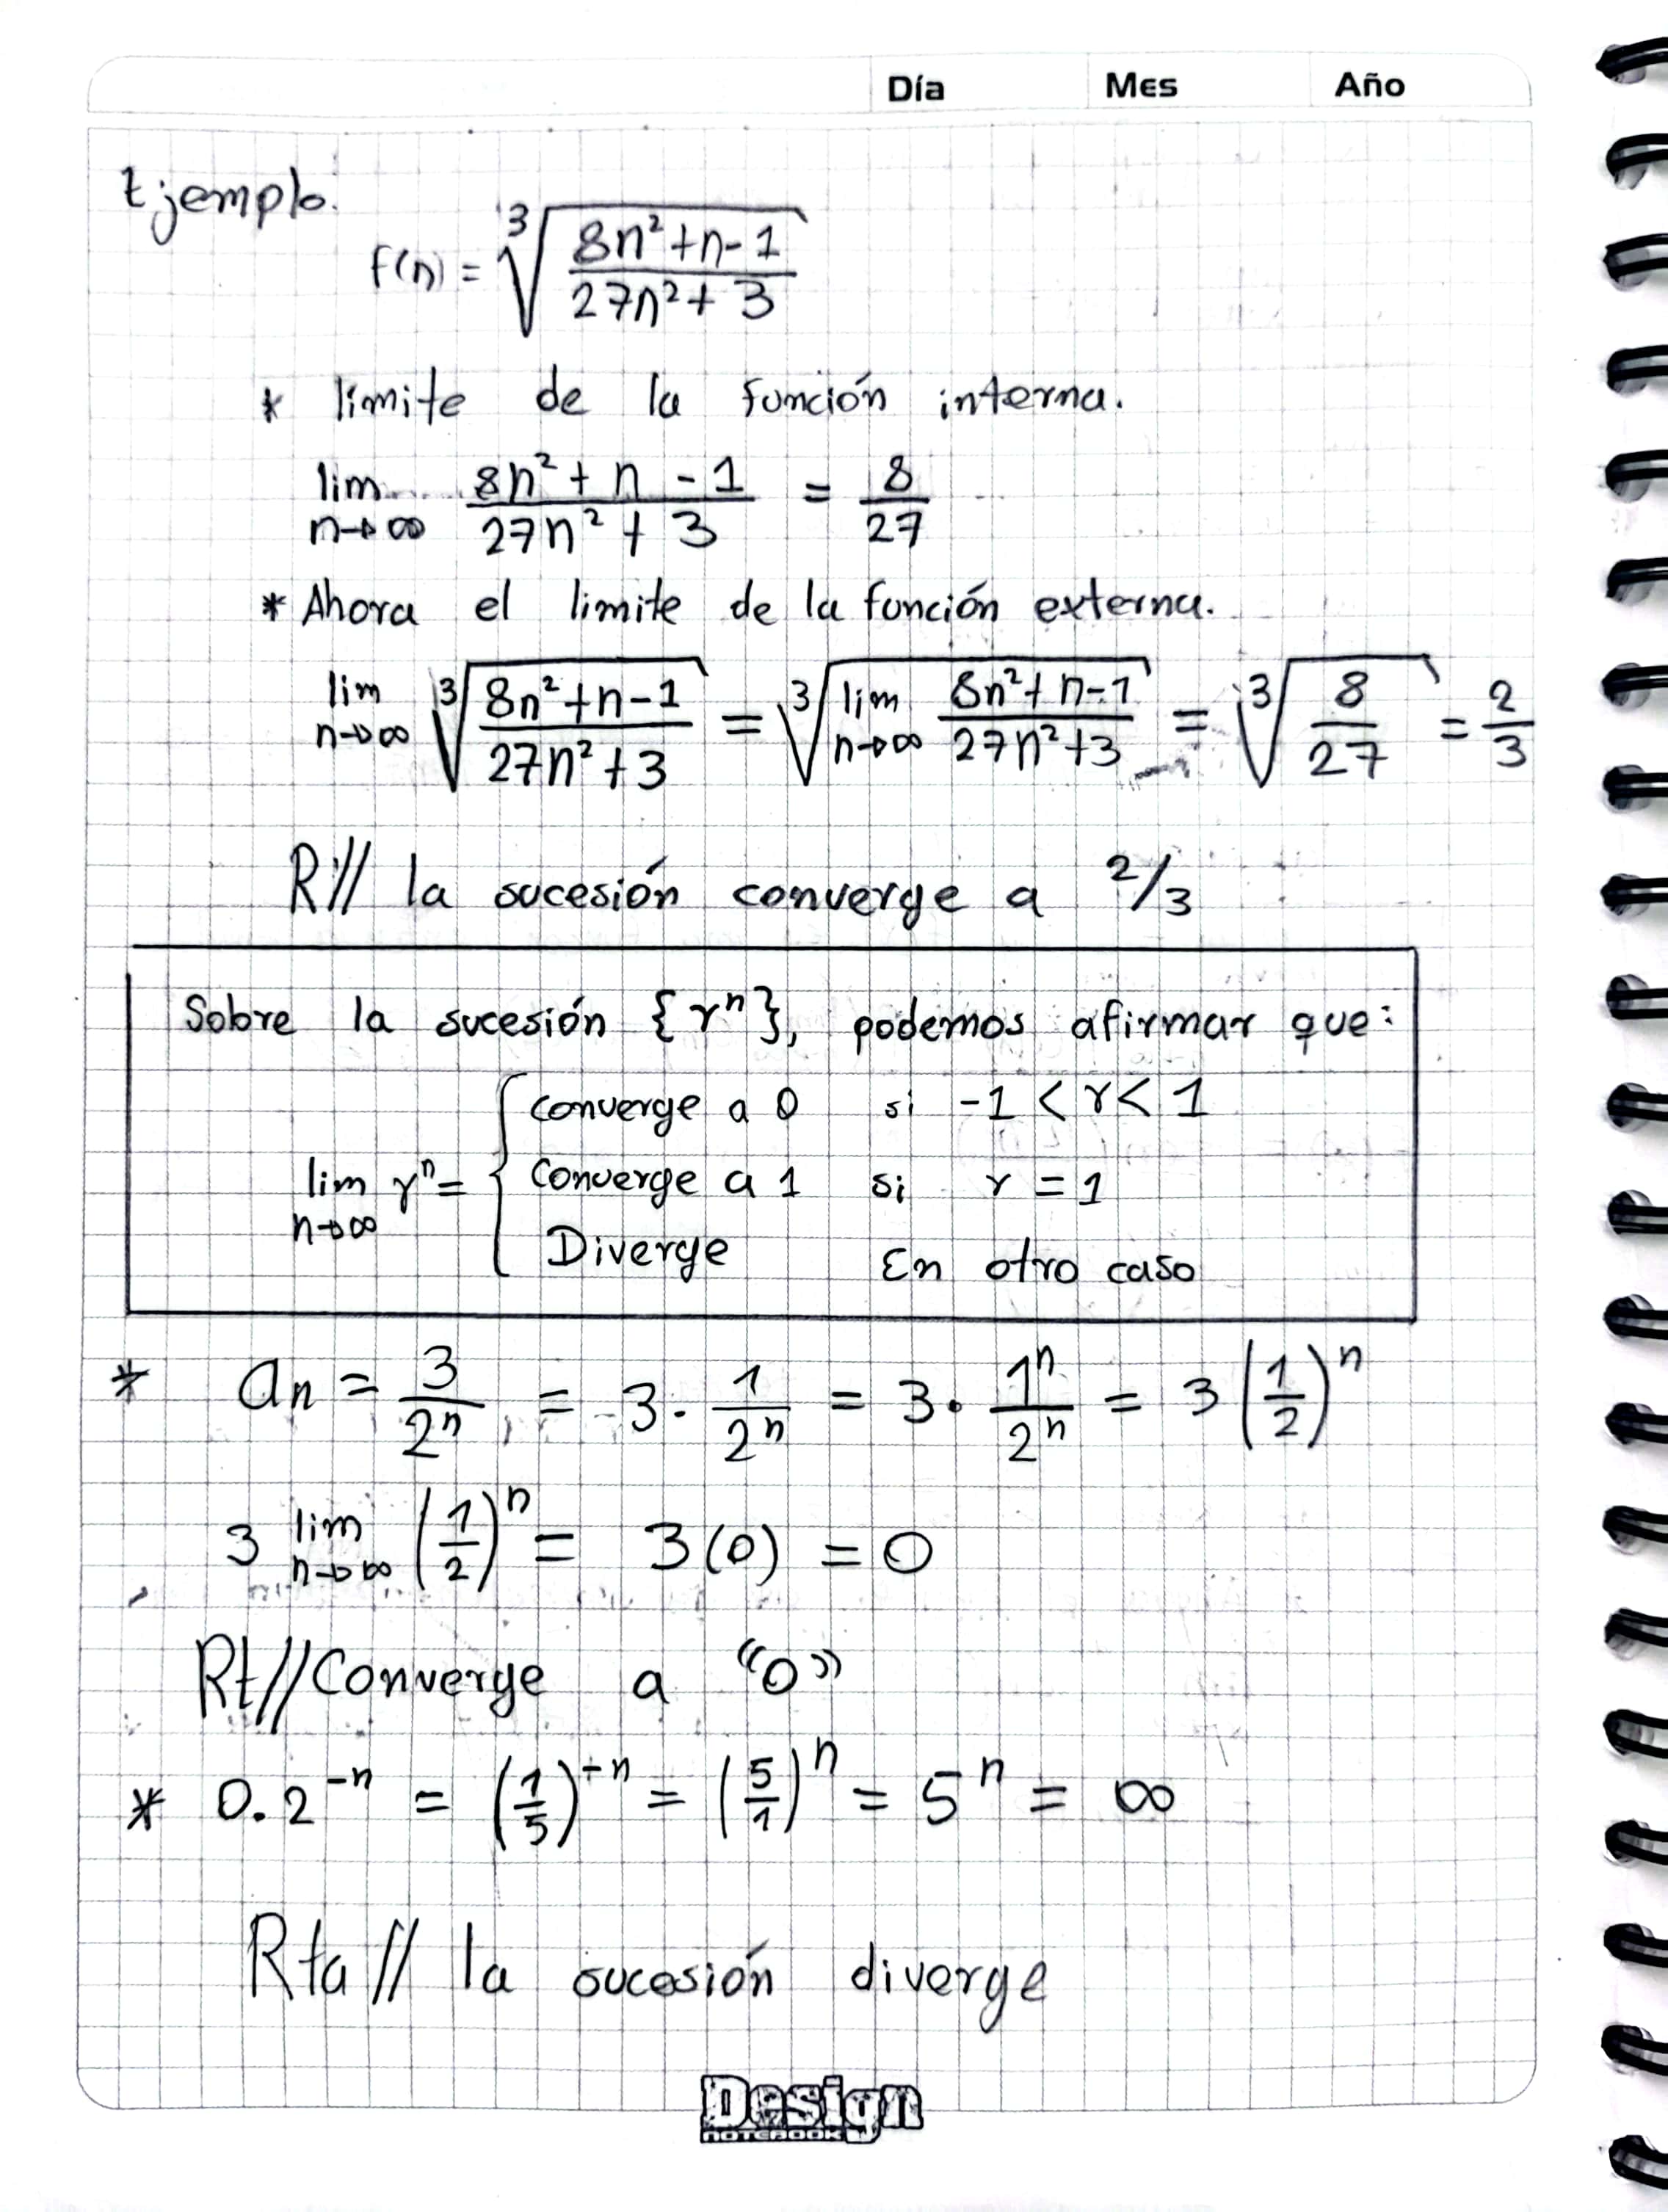 Día Mes Año
Ejemplo.
f(n) = ∛((8n²+n-1)/(27n²+3))
* limite de la función interna.
lim n→∞ (8n²+n-1)/(27n²+3) = 8/27
* Ahora el limite de la función externa.
lim n→∞ ∛((8n²+n-1)/(27n²+3)) = ∛(lim n→∞ (8n²+n-1)/(27n²+3)) = ∛(8/27) = 2/3
R// la sucesión converge a 2/3
Sobre la sucesión {rⁿ}, podemos afirmar que:
converge a 0 si -1 < r < 1
lim n→∞ rⁿ = { converge a 1 si r = 1
Diverge En otro caso
* an = 3/2ⁿ = 3·1/2ⁿ = 3·1ⁿ/2ⁿ = 3(1/2)ⁿ
3 lim n→∞ (1/2)ⁿ = 3(0) = 0
Rt// Converge a “0”
* 0.2⁻ⁿ = (1/5)⁻ⁿ = (5/1)ⁿ = 5ⁿ = ∞
Rta// la sucesión diverge
Design
NOTEBOOK